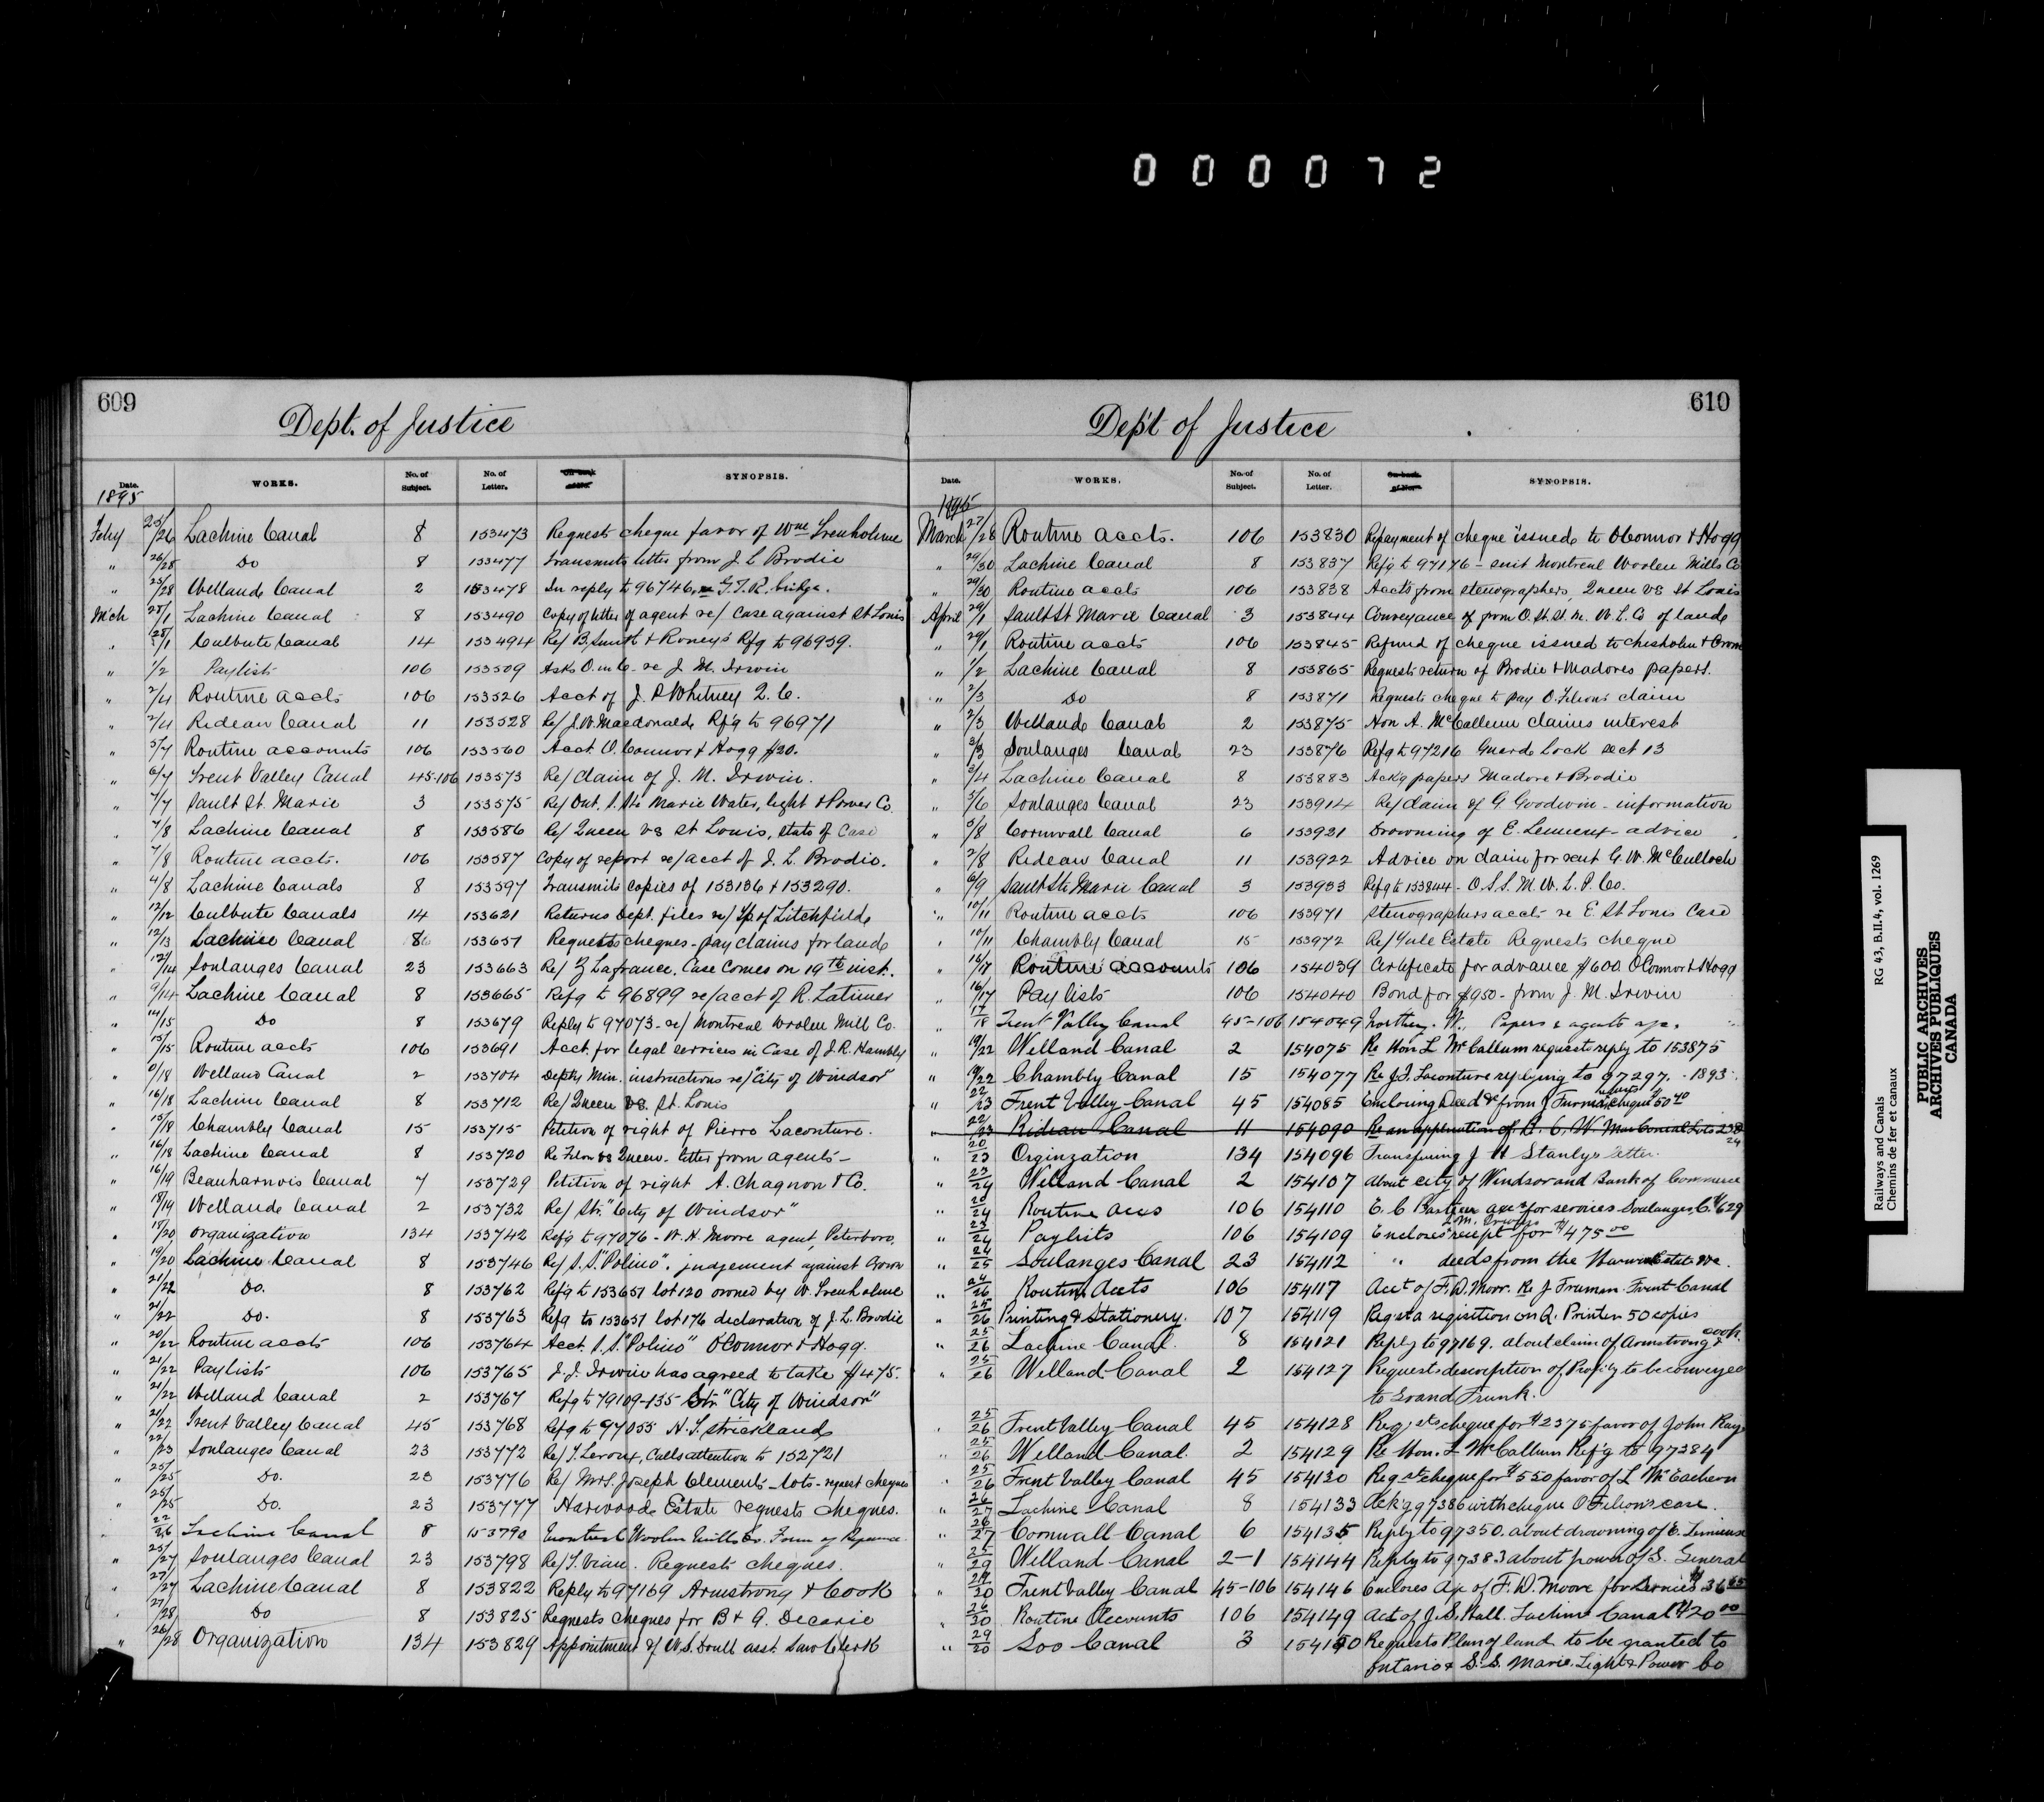 0 0 0 0 7 2
609
Dept. of Justice
Date. WORKS. No. of Subject. No. of Letter. SYNOPSIS.
1895
Feby 25/26 Lachine Canal 8 153473 Requests cheque favor of Wm Trenholme
" 26/28 Do 8 153477 Transmits letter from J L Brodie
" 25/28 Wellands Canal 2 153478 In reply to 96746 re G.T.R. bridge.
Mch 28/1 Lachine Canal 8 153490 Copy of letter of agent re/ Case against St Louis
" 28/1 Culbute Canal 14 153494 Re/ B. Smith & Roney's Rfg to 96959.
" 1/2 Paylists 106 153509 Asks O. in C. re J. M. Irwin
" 2/4 Routine accts 106 153526 Acct of J. P Whitney Q. C.
" 2/4 Rideau Canal 11 153528 Re/ J. W. Macdonalds Rfg to 96971
" 5/7 Routine accounts 106 153560 Acct. O'Connor & Hogg $20.
" 6/7 Trent Valley Canal 45-106 153573 Re/ claim of J. M. Irwin.
" 7/7 Sault St. Marie 3 153575 Re/ Ont. S. Ste Marie Water, light & Power Co
" 7/8 Lachine Canal 8 153586 Re/ Queen vs St Louis, state of Case
" 7/8 Routine accts. 106 153587 Copy of report re/ acct of J. L. Brodie.
" 4/8 Lachine Canals 8 153597 Transmits copies of 153136 & 153290.
" 12/12 Culbute Canals 14 153621 Returns Dept. files re/ Tp of Litchfields
" 12/13 Lachine Canal 8 153651 Requests cheques - pay claims for lands
" 12/14 Soulanges Canal 23 153663 Re/ Z Lafrance. Case comes on 19th inst.
" 9/14 Lachine Canal 8 153665 Refg to 96899 re/ acct of R. Latimer
" 14/15 Do 8 153679 Reply to 97073 - re/ Montreal Woolen Mill Co.
" 15/15 Routine accts 106 153691 Acct. for legal services in Case of J. R. Hambly
" /18 Welland Canal 2 153704 Depty Min. instructions re/ "City of Windsor"
" 16/18 Lachine Canal 8 153712 Re/ Queen vs. St. Louis
" 15/18 Chambly Canal 15 153715 Petition of right of Pierre Laconture.
" 16/18 Lachine Canal 8 153720 Re Filon vs Queen - letter from agents -
" 16/19 Beauharnois Canal 7 153729 Petition of right A. Chagnon & Co.
" 18/19 Wellands Canal 2 153732 Re/ Str. "City of Windsor"
" 18/20 Organization 134 153742 Refg to 97076 - W. H. Moore agent, Peterboro.
" 19/20 Lachine Canal 8 153746 Re/ S. S. "Polino", judgement against Crown
" 21/22 Do. 8 153762 Refg to 153651 lot 120 owned by W. Trenholme
" 21/22 Do. 8 153763 Refg to 153651 lot 176 declaration of J. L. Brodie
" 20/22 Routine accts 106 153764 Acct. S. S. "Polino" O'Connor & Hogg.
" 21/22 Paylists 106 153765 J. J. Irwin has agreed to take $475.
" 21/22 Welland Canal 2 153767 Refg to 79109-135 Str "City of Windsor"
" 21/22 Trent Valley Canal 45 153768 Refg to 97055 H. T. Stricklands
" 22/23 Soulanges Canal 23 153772 Re/ T. Leroux, Calls attention to 152721
" 25/25 Do. 23 153776 Re/ Mrs. Joseph Clements - lots - request cheques
" 25/25 Do. 23 153777 Harwoods Estate requests cheques.
" 22/26 Lachine Canal 8 153790 Montreal Woolen Mills Co. Form of
" 25/27 Soulanges Canal 23 153798 Re/ T. Viau. Requests cheques.
" 27/27 Lachine Canal 8 153822 Reply to 97169 Armstrong & Cook
" 27/28 Do 8 153825 Requests cheques for B & G. Decarie
" 26/28 Organization 134 153829 Appointment of W. S. Doull asst. Law Clerk
610
Dep't of Justice
Date. WORKS. No. of Subject. No. of Letter. SYNOPSIS.
1895
March 27/28 Routine accts. 106 153830 Repayment of cheque issued to OConnor & Hogg
" 29/30 Lachine Canal 8 153837 Refg to 97176 - suit Montreal Woolen Mills Co
" 29/30 Routine accts 106 153838 Accts from stenographers, Queen vs St Louis
April 29/1 Sault St Marie Canal 3 153844 Conveyance of from O. St. St. M. W. L. Co of lands
" 29/1 Routine accts 106 153845 Refund of cheque issued to Chisholm &
" 1/2 Lachine Canal 8 153865 Requests return of Brodie & Madores papers.
" 2/3 Do 8 153871 Requests cheque to pay O. Filion's claim
" 2/3 Wellands Canal 2 153875 Hon A. McCallum claims interest
" 3/3 Soulanges Canal 23 153876 Refg to 97216 Guards Lock Sect 13
" 3/4 Lachine Canal 8 153883 Ackg papers Madore & Brodie
" 5/6 Soulanges Canal 23 153914 Re/ claim of G Goodwin - information
" 5/8 Cornwall Canal 6 153921 Drowning of E. Lemieux - advice
" 2/8 Rideau Canal 11 153922 Advice on claim for rent G. W. McCulloch
" 6/9 Sault Ste Marie Canal 3 153933 Refg to 153844 - O. S. S. M. W. L. P. Co.
" 10/11 Routine accts 106 153971 Stenographers accts re E. St Louis Case
" 10/11 Chambly Canal 15 153972 Re/ Yule Estate Requests cheque
" 16/17 Routine accounts 106 154039 Certificate for advance $600. OConnor & Hogg
" 16/17 Pay lists 106 154040 Bond for $950 - from J. M. Irwin
" 17/18 Trent Valley Canal 45-106 154049 W. Papers & agents
" 19/22 Welland Canal 2 154075 Re Hon L McCallum requests reply to 153875
" 19/22 Chambly Canal 15 154077 Re J. J. Laconture replying to 97297. - 1893.
" 22/23 Trent Valley Canal 45 154085 Encloring Deed &c from J Furman cheque $50
" 22/23 Rideau Canal 11 154090 Re an application of
" 20/23 Orginzation 134 154096 Transfering J H Stanlys letter.
" 23/24 Welland Canal 2 154107 About City of Windsor and Bank of Commerce
" 20/24 Routine accs 106 154110 E. C for services Soulanges C. $629
" 23/24 Paylists 106 154109 Encloses J. M. Irwin's reciept for $475 00
" 24/25 Soulanges Canal 23 154112 " deeds from the Estate
" 24/26 Routine Accts 106 154117 Acct of F. D. Moor. Re J Fruman Trent Canal
" 25/26 Printing & Stationery. 107 154119 Reqst a reqisition on Q. Printer 50 copies
" 25/26 Lachine Canal. 8 154121 Reply to 97169. about claim of Armstrong & Cook.
" 25/26 Welland Canal 2 154127 Requests description of Prop'ty to be conveyed
to Grand Trunk.
" 25/26 Trent Valley Canal 45 154128 Reqsts cheque for $2375 favor of John Ray
" 25/26 Welland Canal. 2 154129 Re Hon. L McCallum Ref'g to 97384
" 25/26 Trent Valley Canal 45 154130 Reqsts cheque for $550 favor of L McEachern
" 26/27 Lachine Canal 8 154133 Ack'g 97386 with cheque O Filion's case.
" 26/27 Cornwall Canal 6 154135 Reply to 97350. about drowning of E. Lemieux
" 27/29 Welland Canal 2-1 154144 Reply to 97383 about power of S. General
" 29/30 Trent Valley Canal 45-106 154146 Encloses a/c of F. D. Moore for Services $36
" 26/30 Routine Accounts 106 154149 Act of J. S. Hall. Lachine Canal $20 00
" 29/30 Soo Canal 3 154150 Requests Plan of land to be granted to
Ontario & S. S. Marie. Light & Power Co
Railways and Canals RG 43, B.II.4, vol. 1269
Chemins de fer et canaux
PUBLIC ARCHIVES
ARCHIVES PUBLIQUES
CANADA